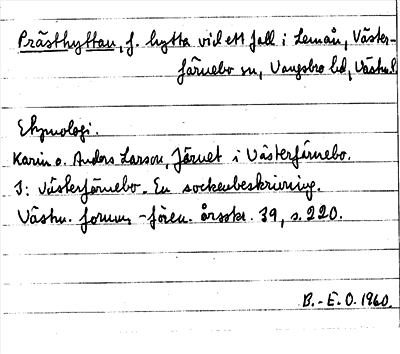 Prästhyttan, f. hytta vid ett fall i Lernån, Väster-
färnebo sn, Vangsbro hd, Västml.
Etymologi.
Karin o. Anders Larson, Järnet i Västerfärnebo.
I: Västerfärnebo. En sockenbeskrivning.
Västm. fornm.-fören. årsskr. 39, s. 220.
B.-E. O. 1960.